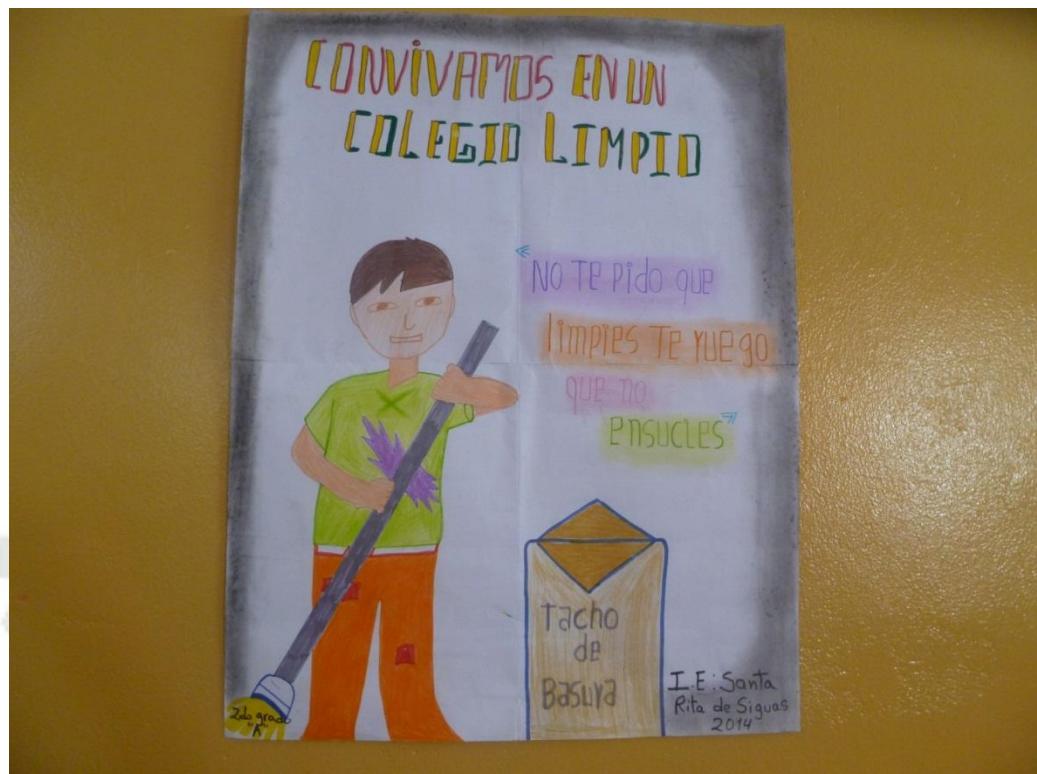 CONVIVAMOS EN UN
COLEGIO LIMPIO
"No Te pido que
limpies Te ruego
que no
ensucles"
Tacho
de
Basura
I.E: Santa
Rita de Siguas
2014
2do grado
"A"